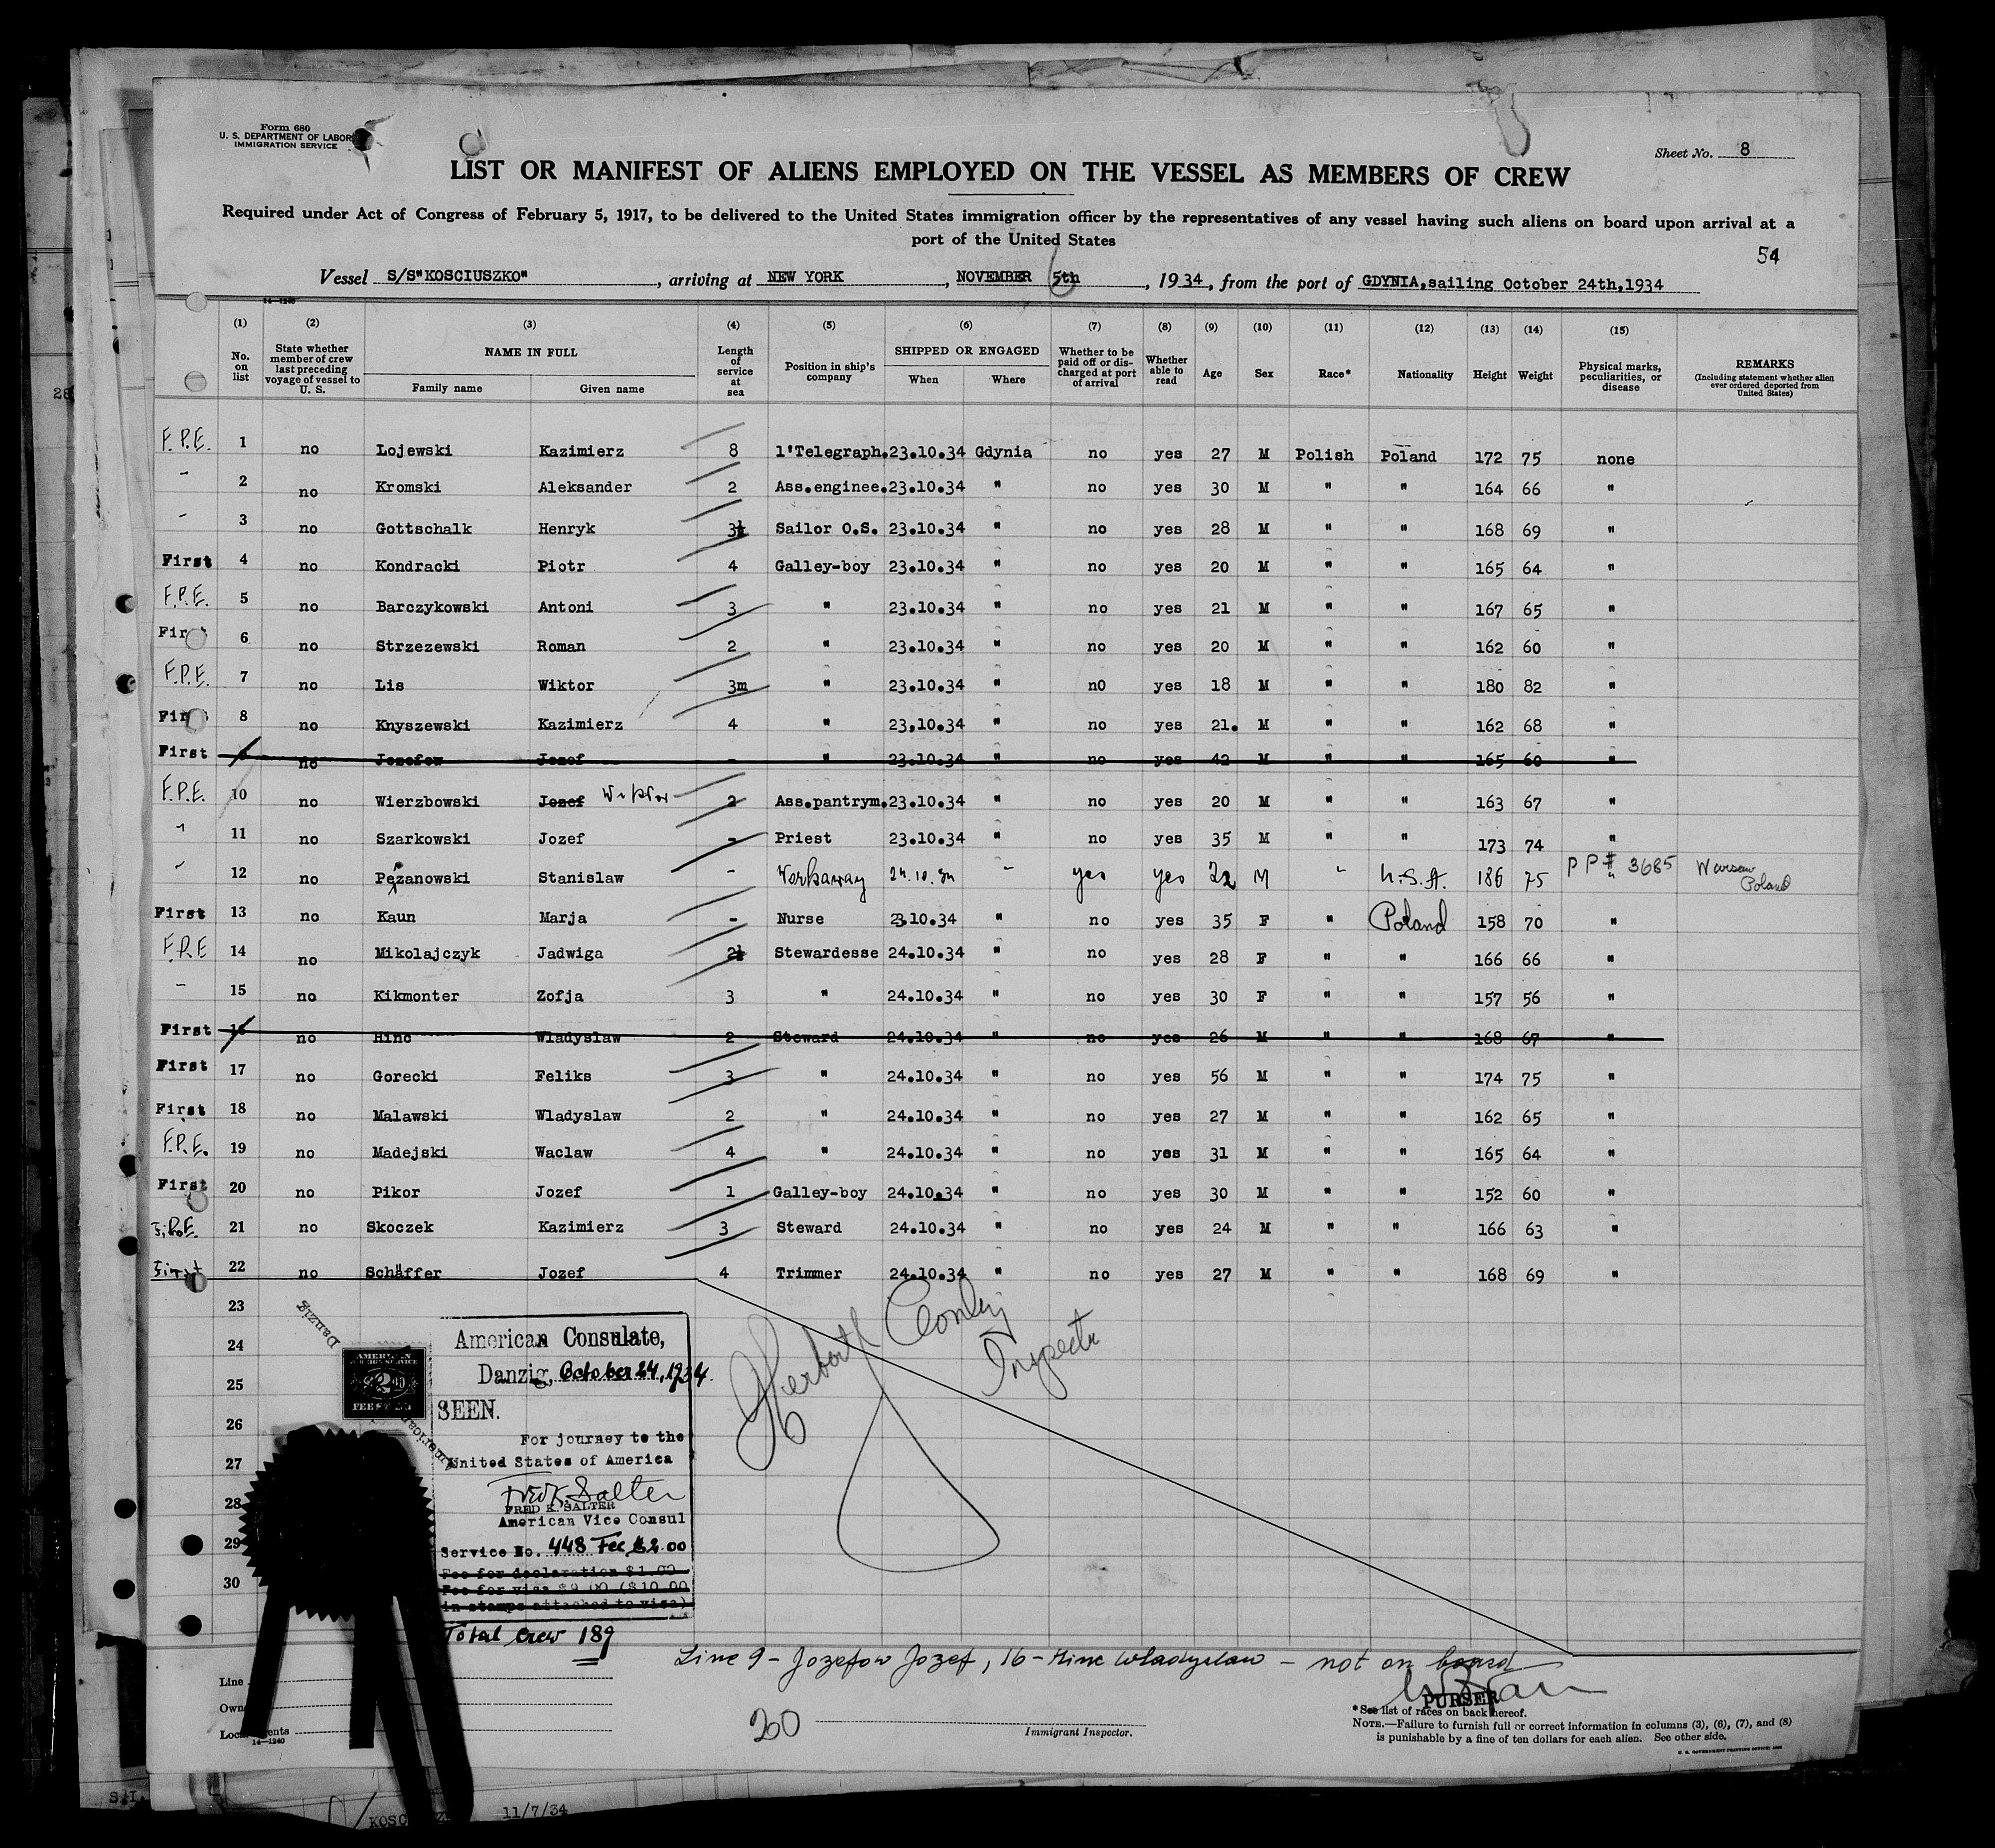 Form 680
U. S. DEPARTMENT OF LABOR
IMMIGRATION SERVICE
Sheet No. 8
LIST OR MANIFEST OF ALIENS EMPLOYED ON THE VESSEL AS MEMBERS OF CREW
Required under Act of Congress of February 5, 1917, to be delivered to the United States immigration officer by the representatives of any vessel having such aliens on board upon arrival at a
port of the United States
54
Vessel S/S"KOSCIUSZKO", arriving at NEW YORK, NOVEMBER 5th, 1934, from the port of GDYNIA,sailing October 24th,1934
14—1240
(1) (2) (3) (4) (5) (6) (7) (8) (9) (10) (11) (12) (13) (14) (15)
No. on list | State whether member of crew last preceding voyage of vessel to U. S. | NAME IN FULL Family name Given name | Length of service at sea | Position in ship's company | SHIPPED OR ENGAGED When Where | Whether to be paid off or discharged at port of arrival | Whether able to read | Age | Sex | Race* | Nationality | Height | Weight | Physical marks, peculiarities, or disease | REMARKS (Including statement whether alien ever ordered deported from United States)
F.P.E. 1 no Lojewski Kazimierz 8 1'Telegraph. 23.10.34 Gdynia no yes 27 M Polish Poland 172 75 none
" 2 no Kromski Aleksander 2 Ass.enginee. 23.10.34 " no yes 30 M " " 164 66 "
" 3 no Gottschalk Henryk 3½ Sailor O.S. 23.10.34 " no yes 28 M " " 168 69 "
First 4 no Kondracki Piotr 4 Galley-boy 23.10.34 " no yes 20 M " " 165 64 "
F.P.E. 5 no Barczykowski Antoni 3 " 23.10.34 " no yes 21 M " " 167 65 "
First 6 no Strzezewski Roman 2 " 23.10.34 " no yes 20 M " " 162 60 "
F.P.E. 7 no Lis Wiktor 3m " 23.10.34 " no yes 18 M " " 180 82 "
First 8 no Knyszewski Kazimierz 4 " 23,10.34 " no yes 21. M " " 162 68 "
First 9 no Jozefow Jozef - " 23.10.34 " no yes 42 M " " 165 60 "
F.P.E. 10 no Wierzbowski Jozef Wiktor 2 Ass.pantrym. 23.10.34 " no yes 20 M " " 163 67 "
" 11 no Szarkowski Jozef - Priest 23.10.34 " no yes 35 M " " 173 74 "
" 12 no Stanislaw - Workaway 24.10.34 " yes yes 22 M " U.S.A. 186 75 PP# 3685 " Warsaw Poland
First 13 no Kaun Marja - Nurse 23.10.34 " no yes 35 F " Poland 158 70 "
F.P.E 14 no Mikolajczyk Jadwiga 2½ Stewardesse 24.10.34 " no yes 28 F " " 166 66 "
" 15 no Kikmonter Zofja 3 " 24.10.34 " no yes 30 F " " 157 56 "
First 16 no Hinc Wladyslaw 2 Steward 24.10.34 " no yes 26 M " " 168 67 "
First 17 no Gorecki Feliks 3 " 24.10.34 " no yes 56 M " " 174 75 "
First 18 no Malawski Wladyslaw 2 " 24.10.34 " no yes 27 M " " 162 65 "
F.P.E. 19 no Madejski Waclaw 4 " 24.10.34 " no yes 31 M " " 165 64 "
First 20 no Pikor Jozef 1 Galley-boy 24.10.34 " no yes 30 M " " 152 60 "
F.P.E. 21 no Skoczek Kazimierz 3 Steward 24.10.34 " no yes 24 M " " 166 63 "
First 22 no Schäffer Jozef 4 Trimmer 24.10.34 " no yes 27 M " " 168 69 "
23
24
25
26
27
28
29
30
American Consulate,
Danzig, October 24, 1934.
SEEN.
For journey to the
United States of America
Fred K. Salter
FRED K. SALTER
American Vice Consul
Service No. 448 Fee $2.00
Fee for declaration $1.00
Fee for visa $9.00 ($10.00
in stamps attached to visa)
Total Crew 189
Herbert Conley
Inspector
Line 9 - Jozefow Jozef, 16 - Hinc Wladyslaw - not on board
PURSER
Line
Own
Local Agents
14—1240
20
Immigrant Inspector.
*See list of races on back hereof.
NOTE.—Failure to furnish full or correct information in columns (3), (6), (7), and (8)
is punishable by a fine of ten dollars for each alien. See other side.
11/7/34